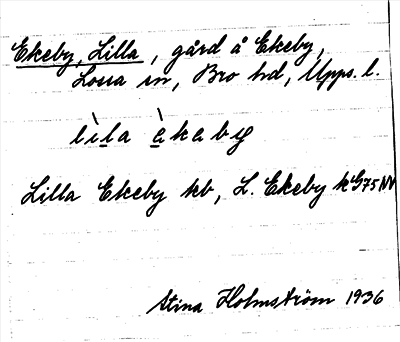 Ekeby, Lilla, gård å Ekeby,
Lossa sn, Bro hd, Upps. l.
lìla èkeby
Lilla Ekeby kb, L. Ekeby k G75NV
Stina Holmström 1936